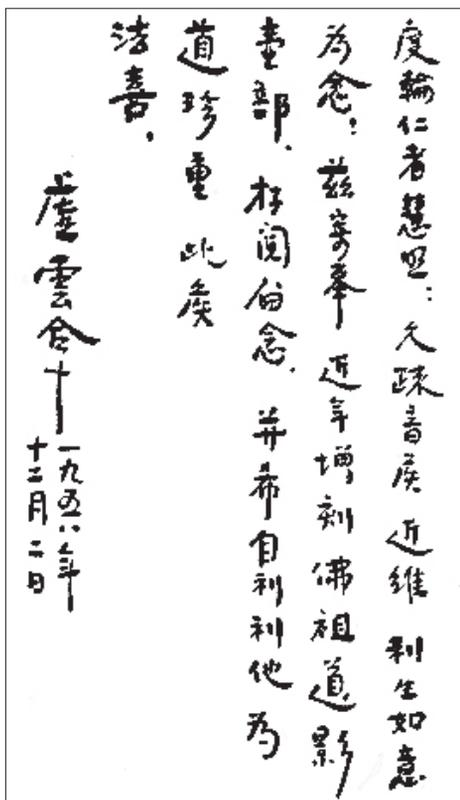 度輪仁者慧照:久疎音候 近維 利生如意
為念:茲寄奉 近年增刻佛祖道影
壹部、存閱留念、并希自利利他為
道珍重 此候
法喜、
虛雲合十
一九五八年
十二月二日